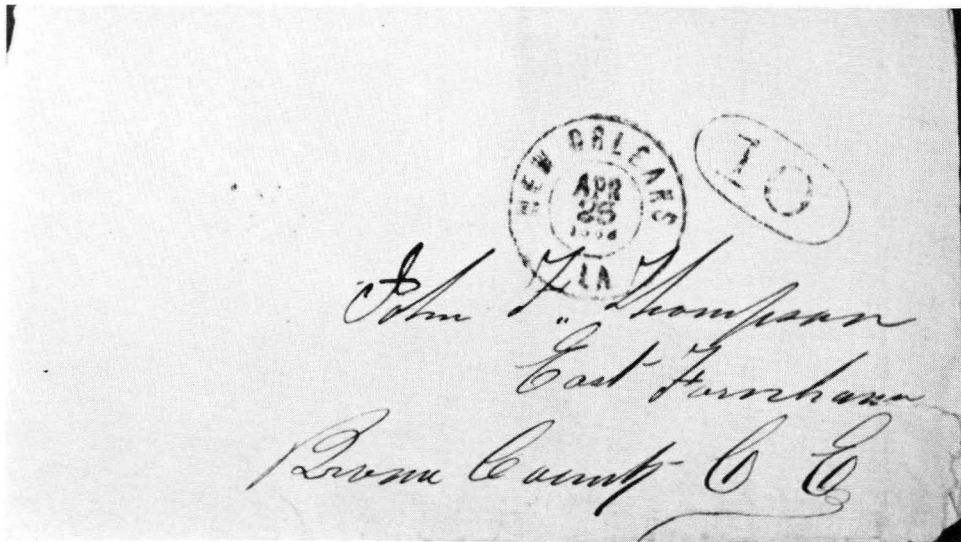 NEW ORLEANS
APR
25
LA
10
John F. Thompson
East Farnham
Brome County C E